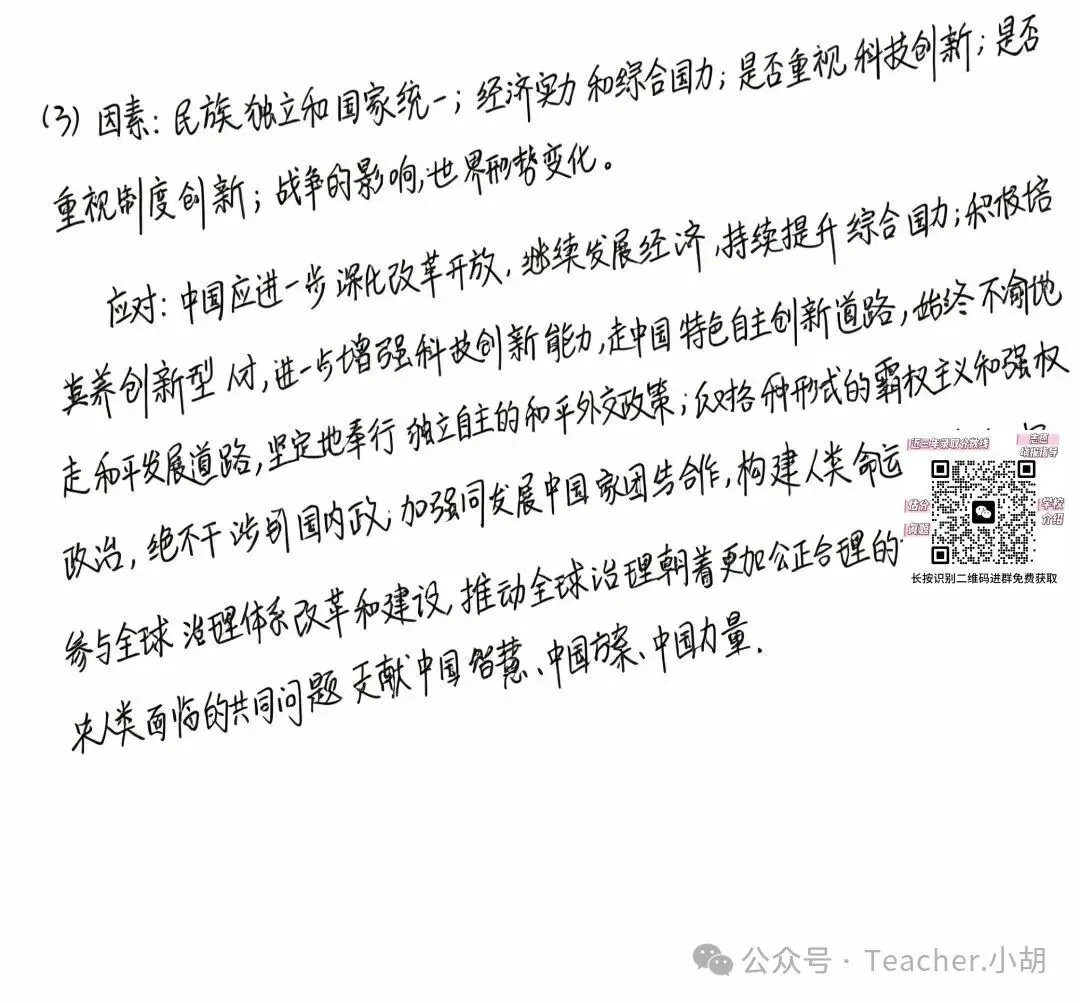 (3) 因素：民族独立和国家统一；经济实力和综合国力；是否重视科技创新；是否
重视制度创新；战争的影响，世界形势变化。
应对：中国应进一步深化改革开放，继续发展经济，持续提升综合国力；积极培
养创新型人才，进一步增强科技创新能力，走中国特色自主创新道路，始终不渝地
走和平发展道路，坚定地奉行独立自主的和平外交政策；反对各种形式的霸权主义和强权
政治，绝不干涉别国内政；加强同发展中国家团结合作，构建人类命运
参与全球治理体系改革和建设，推动全球治理朝着更加公正合理的
决人类面临的共同问题贡献中国智慧、中国方案、中国力量.
近三年录取分数线
志愿
填报指导
估分
真题
学校
介绍
长按识别二维码进群免费获取
公众号 · Teacher.小胡